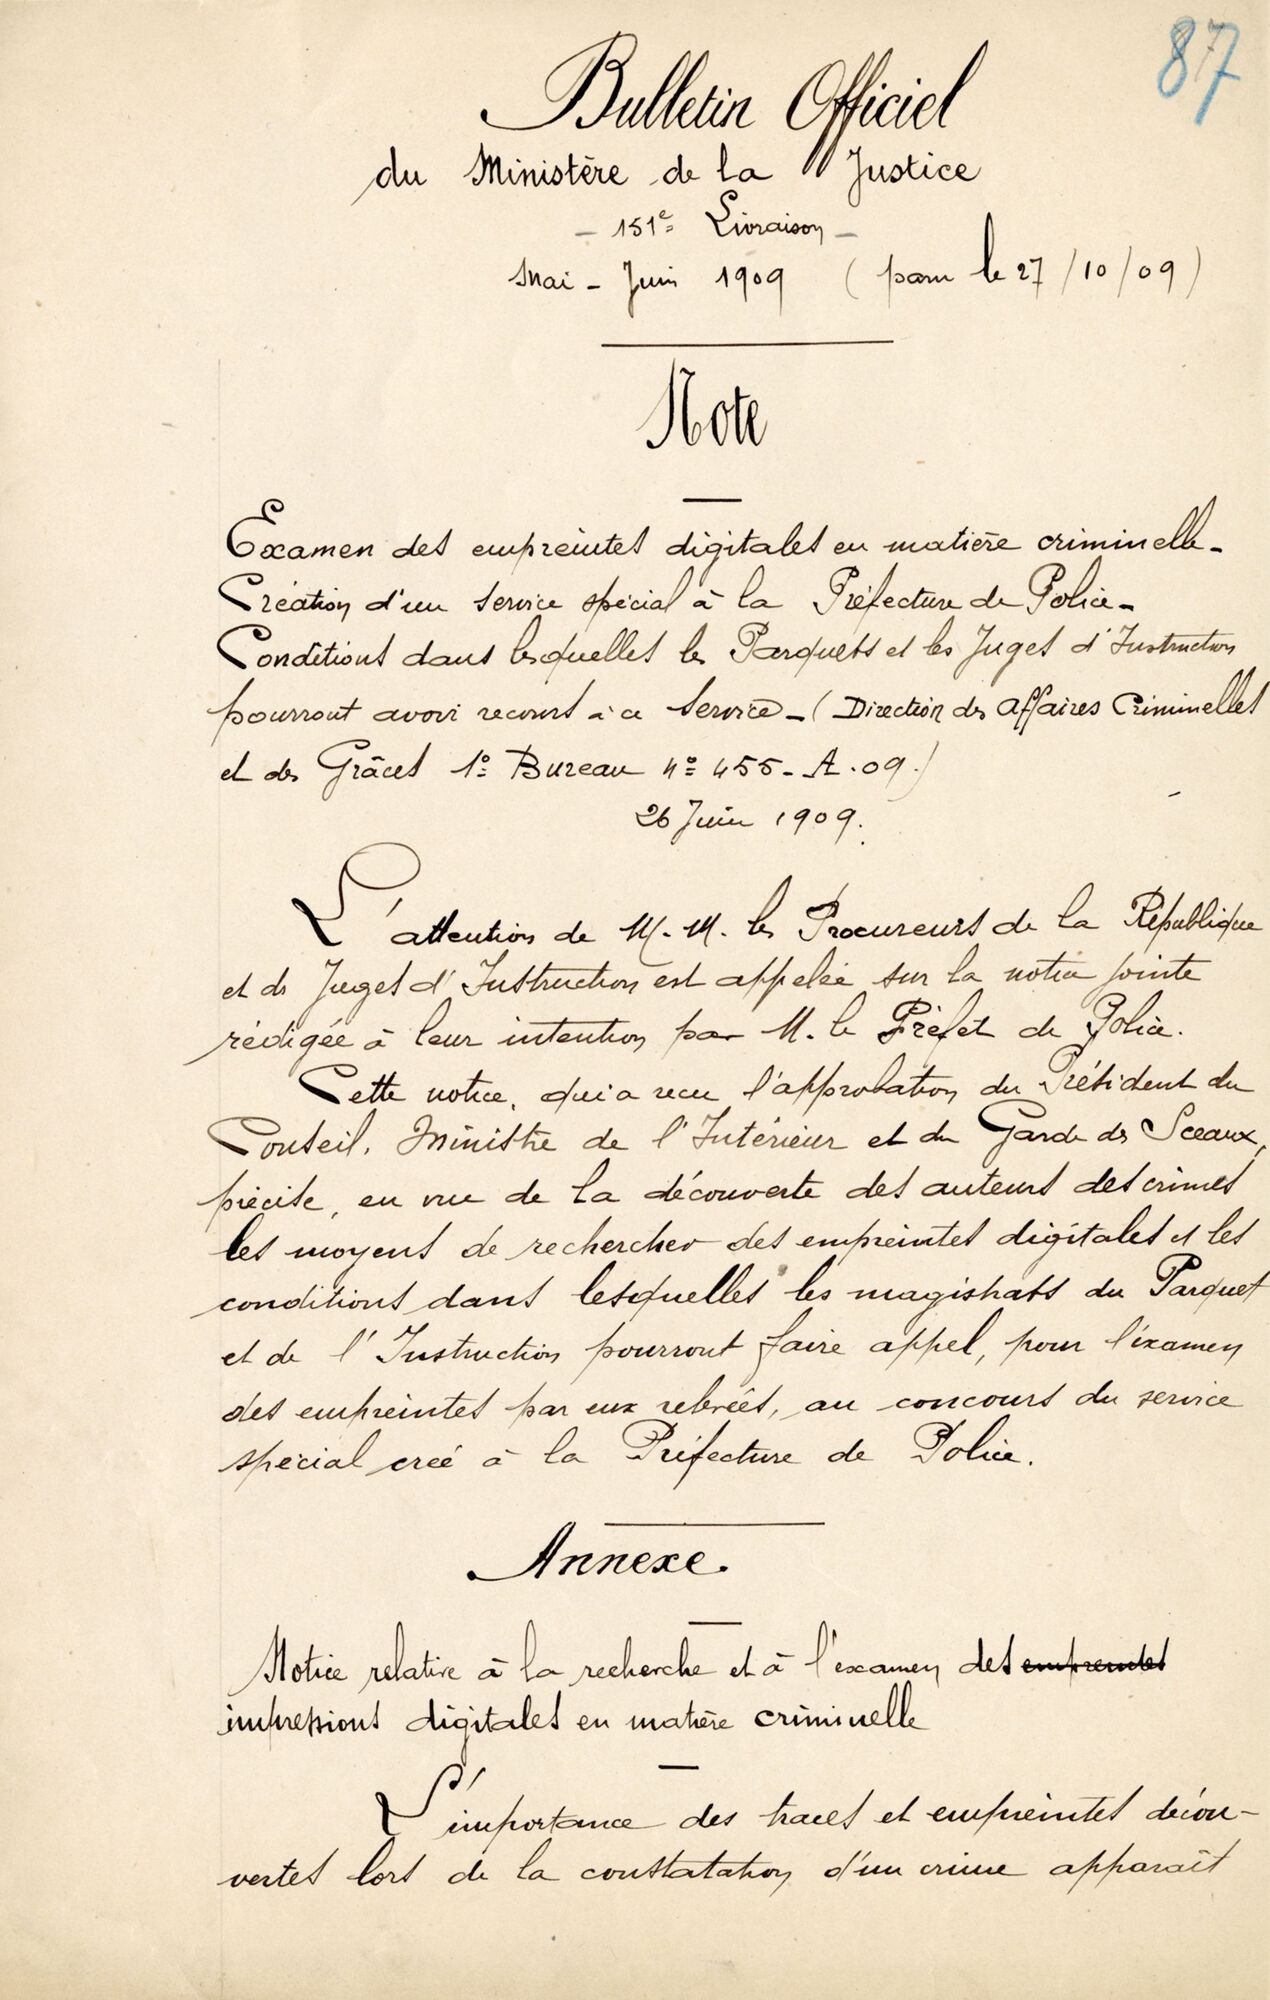 87
Bulletin Officiel
du Ministère de la Justice
- 151e Livraison -
Mai - Juin 1909 (paru le 27/10/09)
Note
Examen des empreintes digitales en matière criminelle -
Création d'un service spécial à la Préfecture de Police -
Conditions dans lesquelles les Parquets et les Juges d'Instruction
pourront avoir recours à ce service - (Direction des Affaires Criminelles
et des Grâces 1o Bureau no 455 - A. 09.)
26 Juin 1909.
L'attention de M. M. les Procureurs de la République
et des Juges d'Instruction est appelée sur la notice jointe
rédigée à leur intention par M. le Préfet de Police.
Cette notice, qui a reçu l'approbation du Président du
Conseil, Ministre de l'Intérieur et du Garde des Sceaux,
précise, en vue de la découverte des auteurs des crimes
les moyens de rechercher des empreintes digitales et les
conditions dans lesquelles les magistrats du Parquet
et de l'Instruction pourront faire appel, pour l'examen
des empreintes par eux relevées, au concours du service
spécial créé à la Préfecture de Police.
Annexe.
Notice relative à la recherche et à l'examen des empreintes
impressions digitales en matière criminelle
L'importance des traces et empreintes décou-
vertes lors de la constatation d'un crime apparaît